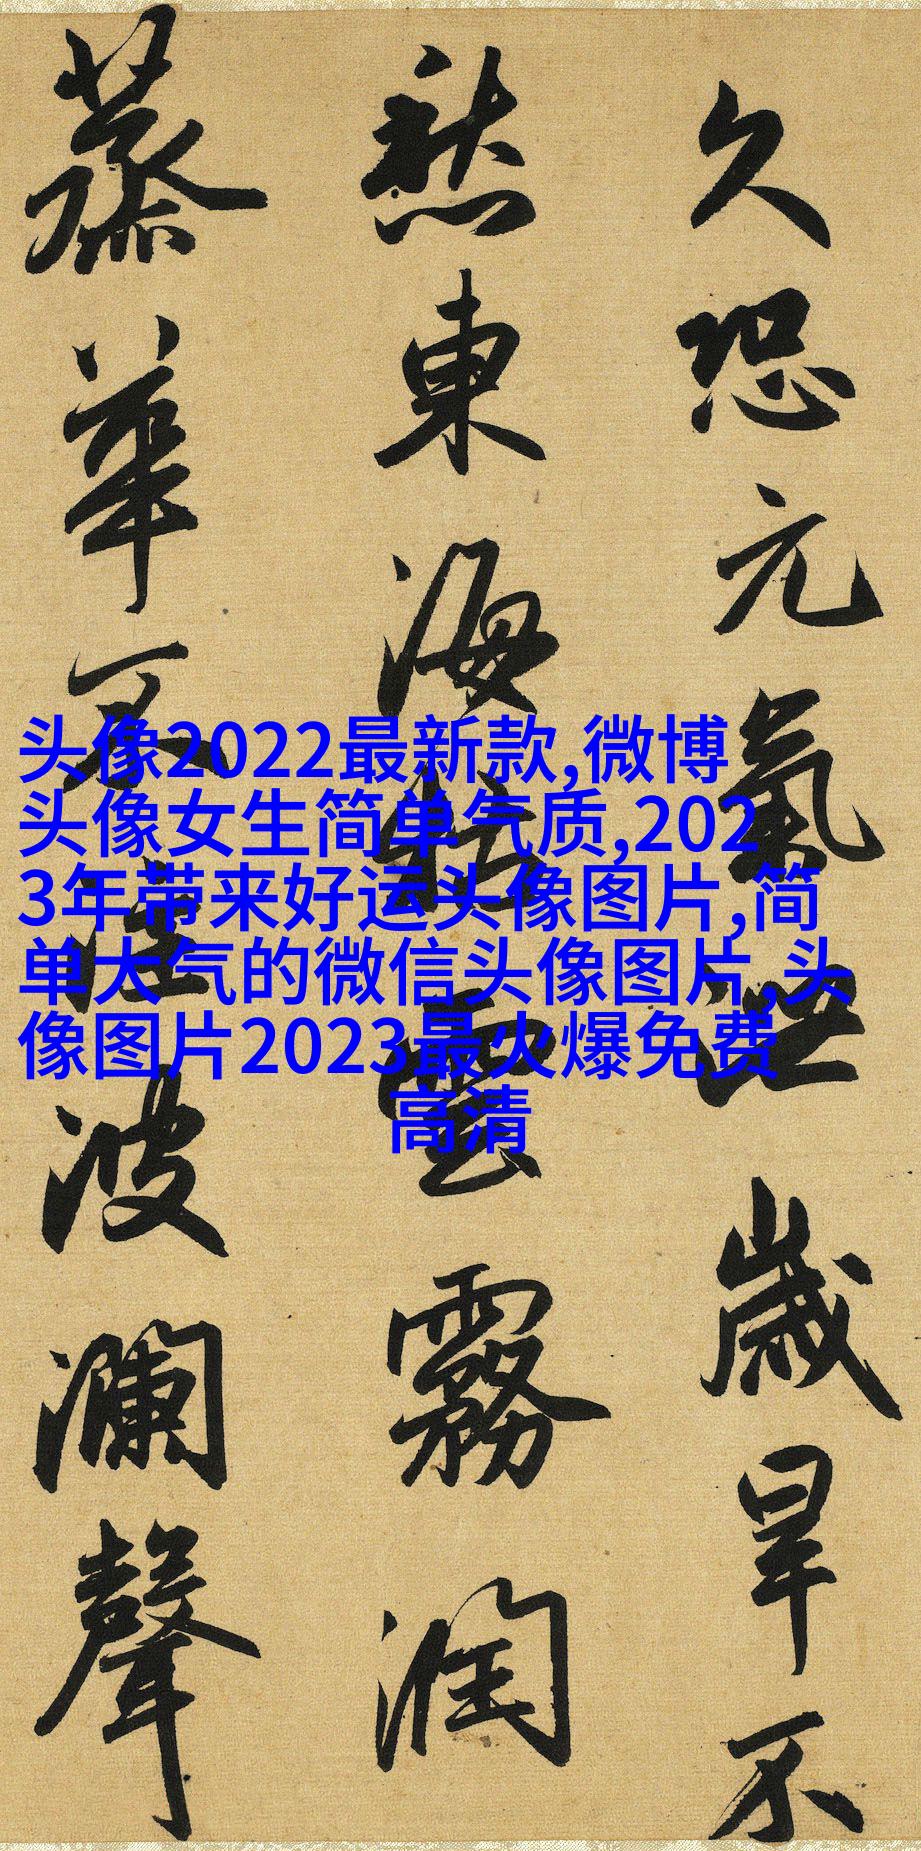 久恐元氣泄歲旱不
愁東海枯雲霧潤
蒸華不注波瀾聲
头像2022最新款,微博
头像女生简单气质,202
3年带来好运头像图片,简
单大气的微信头像图片,头
像图片2023最火爆免费
高清